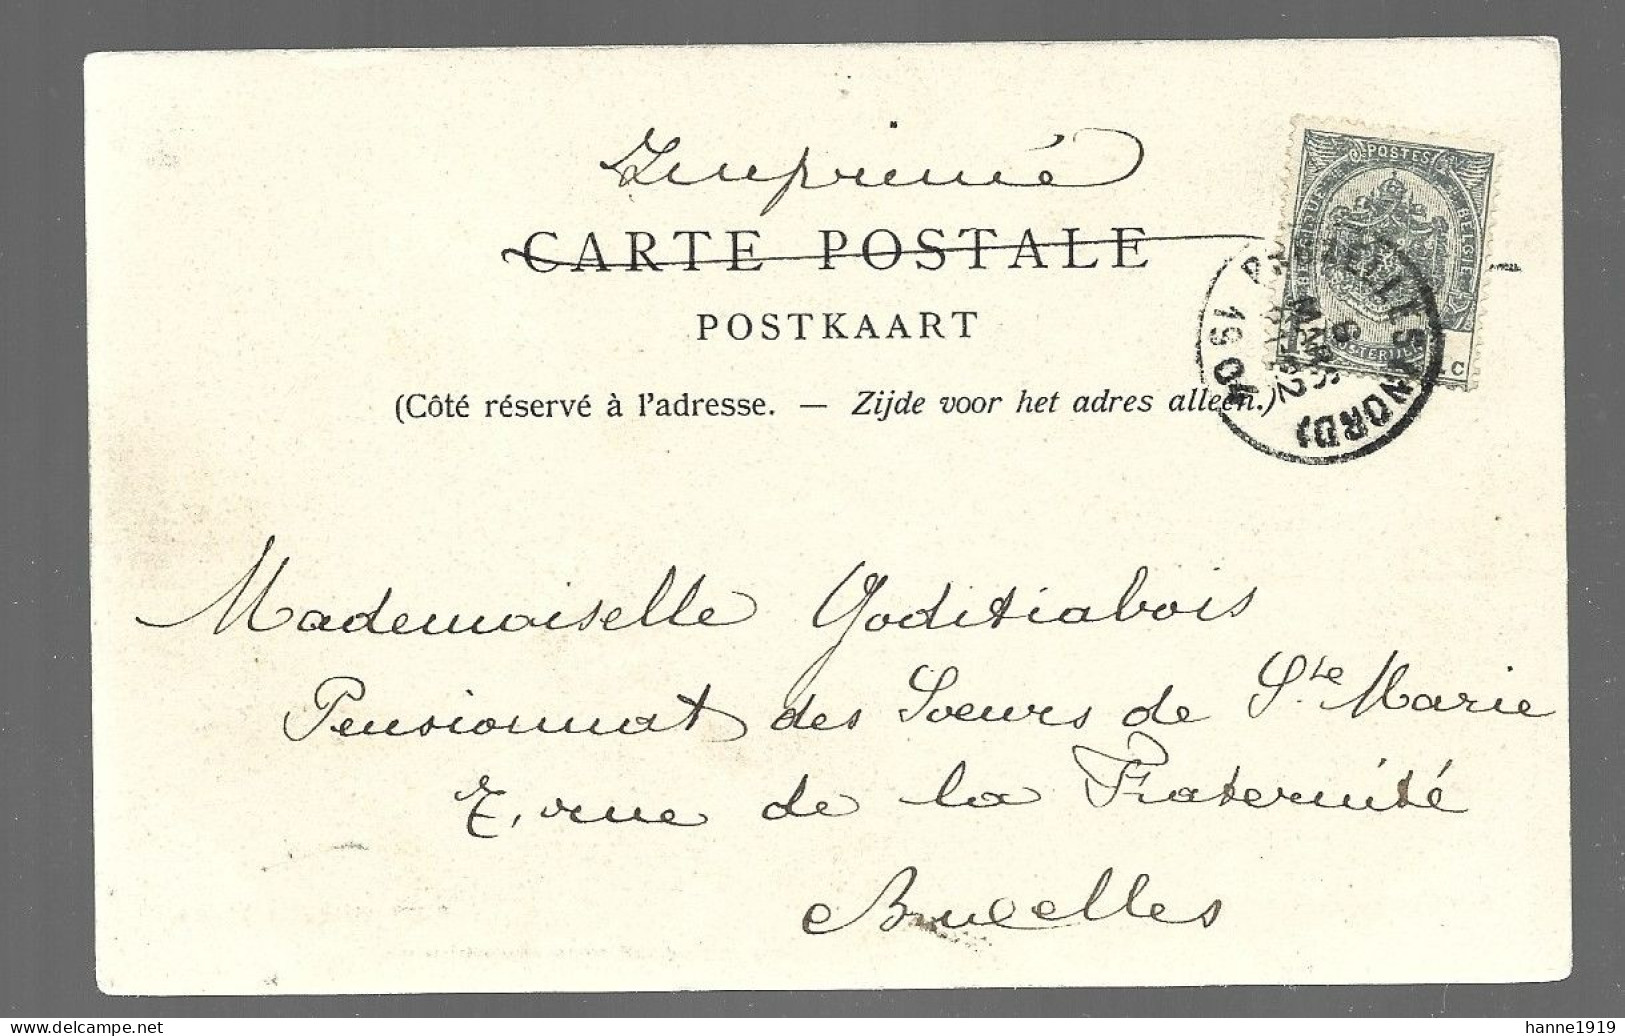 Imprimé
CARTE POSTALE
POSTKAART
(Côté réservé à l'adresse. — Zijde voor het adres alleen.)
POSTES
BELGIQUE
BELGIE
BRUXELLES (NORD)
6
MARS
1904
Mademoiselle Goditiabois
Pensionnat des Soeurs de Ste Marie
7, rue de la Fraternité
Bruxelles
hanne1919